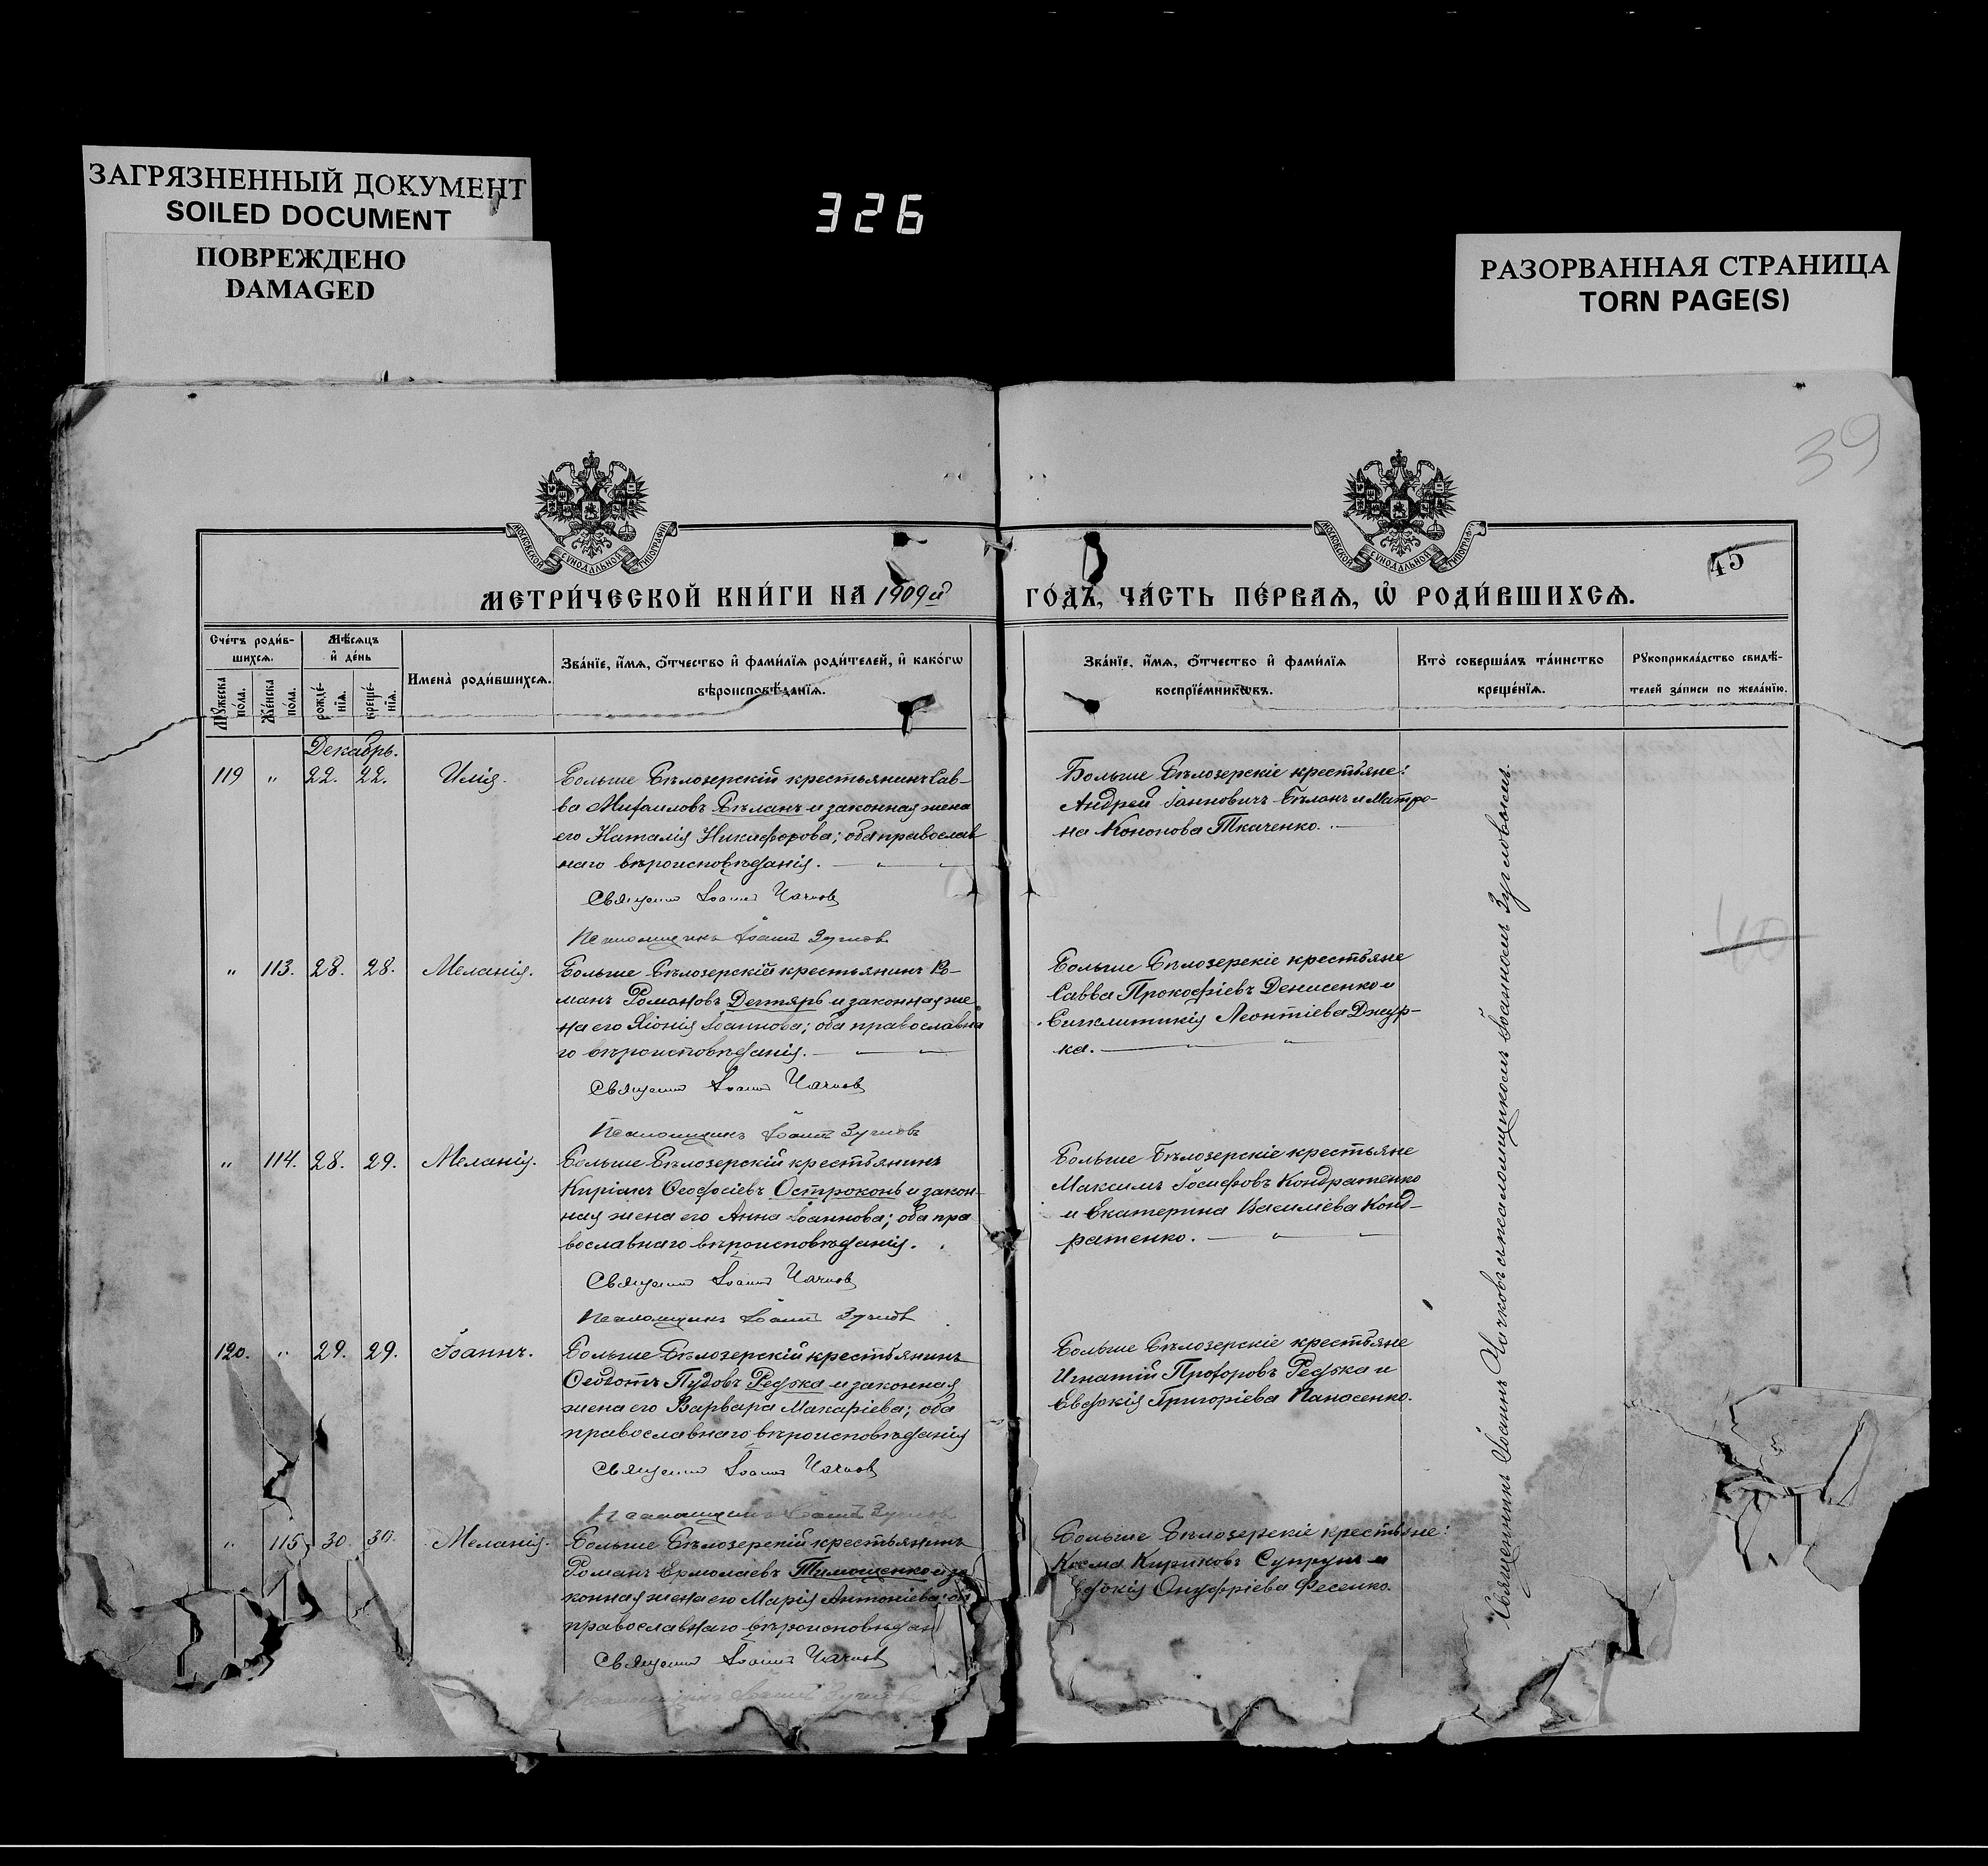 ЗАГРЯЗНЕННЫЙ ДОКУМЕНТ
SOILED DOCUMENT
ПОВРЕЖДЕНО
DAMAGED
326
РАЗОРВАННАЯ СТРАНИЦА
TORN PAGE(S)
39
45
МОСКОВСКОЙ СѴНОДАЛЬНОЙ ТИПОГРАФІИ
МОСКОВСКОЙ СѴНОДАЛЬНОЙ ТИПОГРАФІИ
МЕТРИ́ЧЕСКОЙ КНИ́ГИ НА 1909й ГО́ДЪ, ЧА́СТЬ ПЕ́РВАѦ, Ѡ҆ РОДИ́ВШИХСѦ.
Сче́тъ роди́в-
шихсѧ.
Мѣ́сѧцъ
и҆ де́нь
Мꙋ́жеска
по́ла.
Же́нска
по́ла.
рожде́-
нїѧ.
креще́-
нїѧ.
Имена̀ роди́вшихсѧ.
Зва́нїе, и҆́мѧ, ѻ҆́тчество и҆ фами́лїѧ роди́телей, и҆ како́гѡ
вѣроисповѣ́данїѧ.
Зва́нїе, и҆́мѧ, ѻ҆́тчество и҆ фами́лїѧ
воспрїе́мникѡвъ.
Кто̀ соверша́лъ та́инство
креще́нїѧ.
Рꙋкоприкла́дство свидѣ́-
телей за́писи по жела́нїю.
Декабрь.
119 " 22. 22. Илія.
Больше Бѣлозерскій крестьянинъ Сав-
ва Михаиловъ Бѣланъ и законная жена
его Наталія Никифорова; оба православ
наго вѣроисповѣданія.
Священн Іоаннъ Чачков
Псаломщикъ Іоаннъ Зугилов
Больше Бѣлозерскіе крестьяне:
Андрей Іанновичъ Бѣланъ и Матро-
на Кононова Ткаченко.
" 113. 28. 28. Меланія.
Больше Бѣлозерскій крестьянинъ Ро-
манъ Романовъ Дегтярь и законная же
на его Хіонія Іоаннова; оба православна
го вѣроисповѣданія.
Священн Іоаннъ Чачков
Псаломщикъ Іоаннъ Зугиловъ
Больше Бѣлозерскіе крестьяне
Савва Прокофіевъ Денисенко и
Сигклитикія Леонтіева Джур-
ка.
" 114. 28. 29. Меланія.
Больше Бѣлозерскій крестьянинъ
Киріакъ Ѳеофосіевъ Остроконь и закон-
ная жена его Анна Іоаннова; оба пра
вославнаго вѣроисповѣданія.
Священн Іоаннъ Чачков
Псаломщикъ Іоаннъ Зугилов
Больше Бѣлозерскіе крестьяне
Максимъ Іосифовъ Кондратенко
и Екатерина Василіева Конд-
ратенко.
120. " 29. 29. Іоаннъ.
Больше Бѣлозерскій крестьянинъ
Ѳеодотъ Пудовъ Редька и законная
жена его Варвара Макаріева; оба
православнаго вѣроисповѣданія
Священн Іоаннъ Чачков
Псаломщикъ Іоаннъ Зугилов
Больше Бѣлозерскіе крестьяне
Игнатій Прохоровъ Редька и
Евдокія Григоріева Панасенко.
" 115. 30. 30. Меланія.
Больше Бѣлозерскій крестьянинъ
Романъ Ермолаевъ Тимошенко и за
конная жена его Марія Антоніева; об
православнаго вѣроисповѣдан
Священн Іоаннъ Чачков
Псаломщикъ Іоаннъ Зугилов
Больше Бѣлозерскіе крестьяне:
Косма Кириковъ Супрунъ и
Евдокія Онуфріева Фесенко.
Священникъ Іоаннъ Чачковъ съ псаломщикомъ Іоанномъ Зугиловымъ.